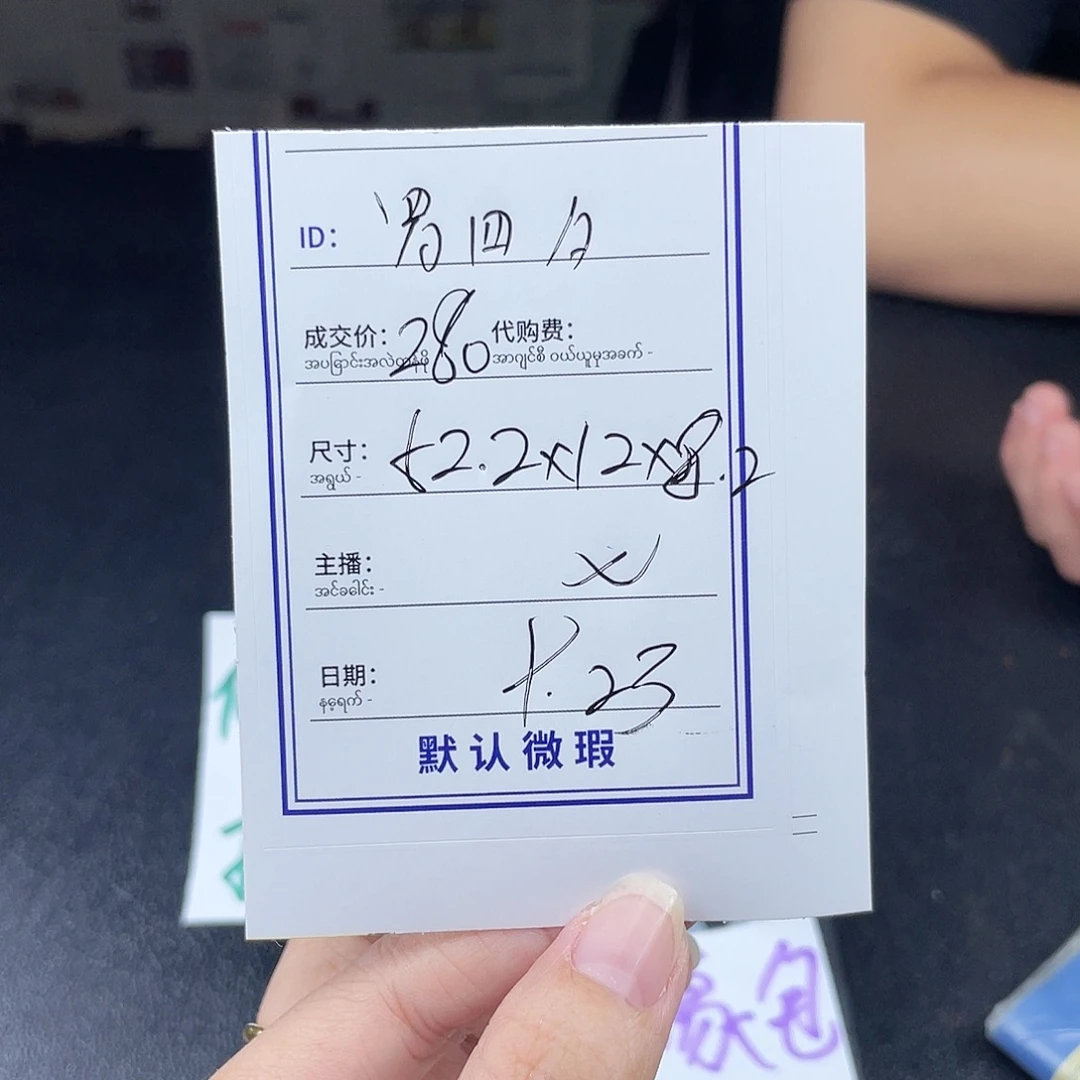 ID:
成交价: 280 代购费:
အပြောင်းအလဲတန်ဖိုး အာဂျင်စီ ဝယ်ယူမှုအခက် -
尺寸: 52.2x12x8.2
အရွယ် -
主播:
အင်ခခေါင်း -
日期: 7.23
နေ့ရက် -
默认微瑕
家包